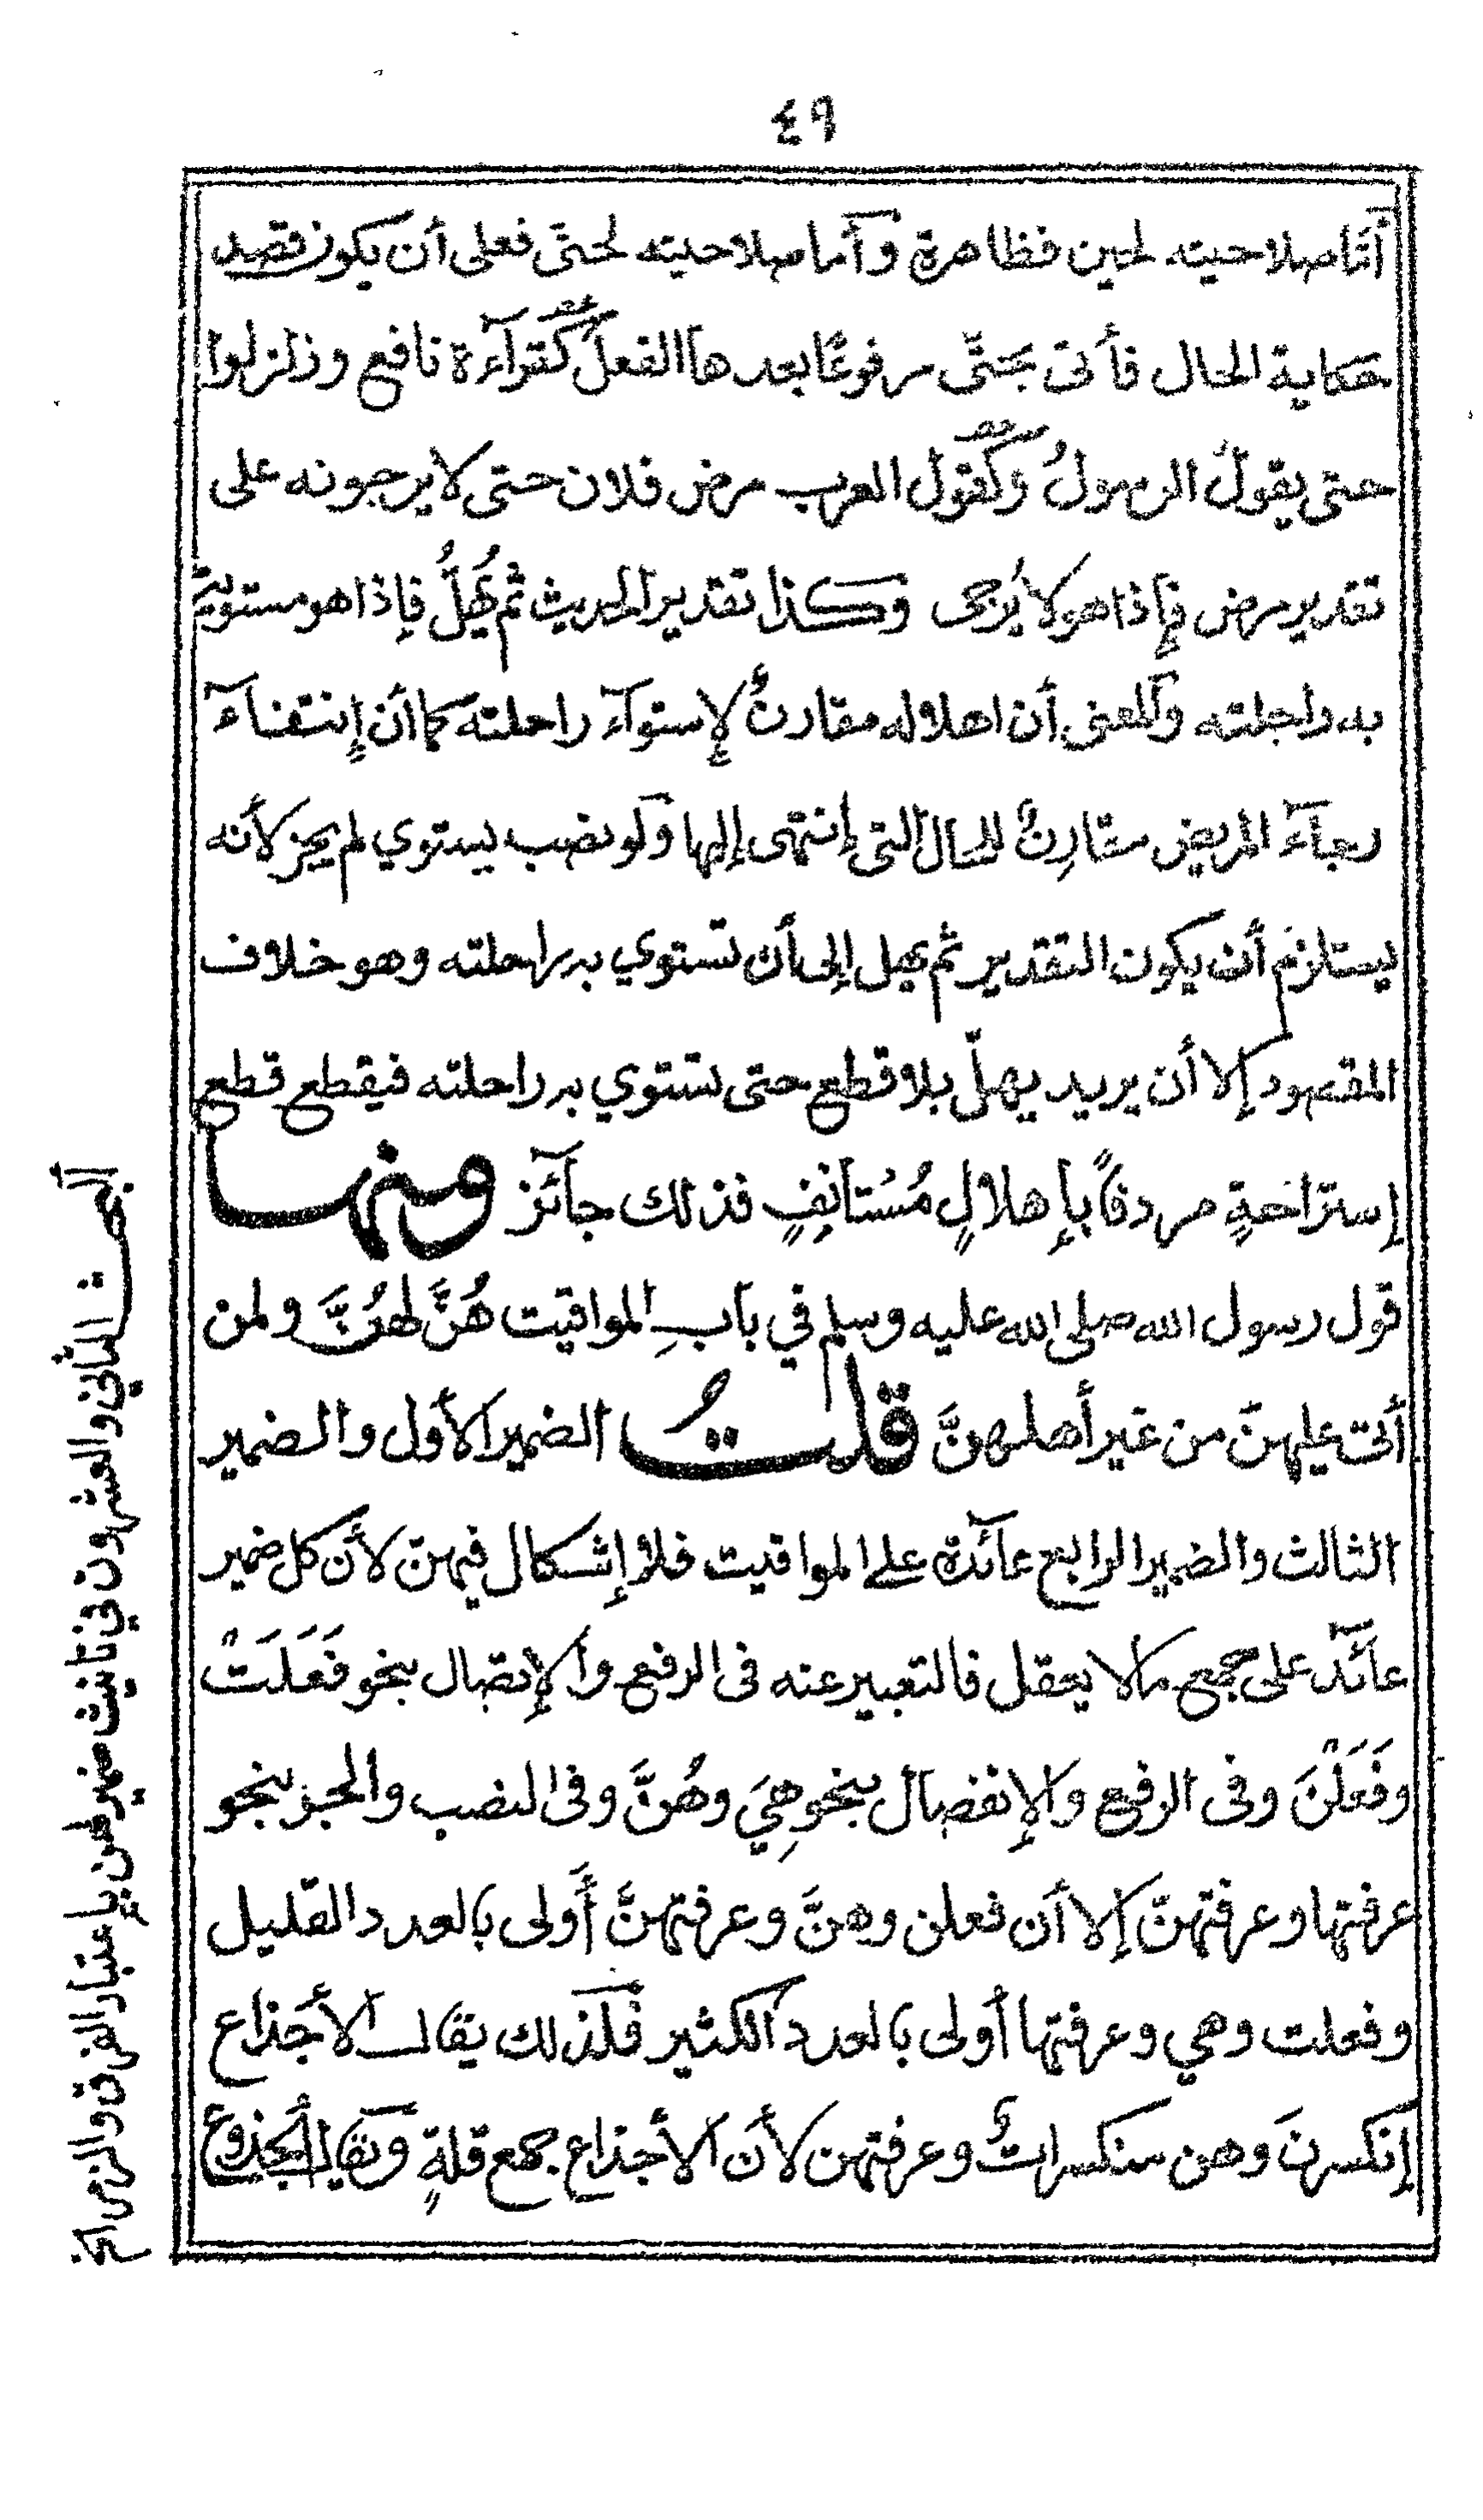 ٤٩
أمّا صلاحيته لحين فظاهرة وأما صلاحيته لحتىّ فعلى أن يكون قصد
حكاية الحال فأتى بحتىّ مرفوعًا بعدها الفعلُ كقرآءة نافع وزلزلوا
حتى يقولُ الرسولُ وكقول العرب مرض فلان حتى لا يرجونه على
تقدير مرض فإذا هو لا يُرجى وكذا تقدير الحديث ثم يُهِلُّ فإذا هو مستوية
به راحلته والمعنى أن اهلاله مقارنٌ لإستوآء راحلته كما أن إنتفآء
رجآء المريض مقارِنٌ للحال التى إنتهى إليها ولو نصب يستوي لم يجز لأنه
يستلزم أن يكون التقدير ثم يهل إلى أن تستوي به راحلته وهو خلاف
المقصود إلا أن يريد يهلّ بلا قطع حتى تستوي به راحلته فيقطع قطع
إستراحَةٍ مردفًا بإهلالٍ مُسْتانِفٍ فذلك جآئز ومنها
قول رسول الله صلى الله عليه وسلم في بابِ المواقيت هُنَّ لهُنَّ ولمن
أتى عليهنّ من غير أهلهنَّ قلتُ الضمير الأول والضمير
الثالث والضمير الرابع عآئدة على المواقيت فلا إشكال فيهنّ لأن كل ضمير
عآئد على جمع ما لا يعقل فالتعبير عنه فى الرفع والإتصال بنحو فَعَلَتْ
وفَعَلْنَ وفى الرفع والإنفصال بنحو هِيَ وهُنَّ وفى النصب والجر بنحو
عرفتها وعرفتهنّ إلا أن فعلن وهنَّ وعرفتهنَّ أَولى بالعدد القليل
وفعلت وهي وعرفتها أولى بالعدد الكثير فلذلك يقال الأجذاع
إنكسرنَ وهن منكسراتٌ وعرفتهن لأن الأجذاع جمع قلةٍ ويقال الجذوع
البحث الثاني والعشرون في تانيث ضمير لهن بإعتبار الفرق والزمر الخ